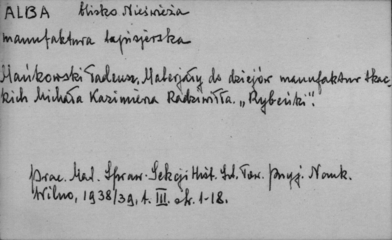 ALBA blisko Nieświeża
manufaktura tapisjerska
Mańkowski Tadeusz, Materjały do dziejów manufaktur tkac-
kich Michała Kazimierza Radziwiłła „Rybeńki".
Prac. Mat. Spraw. Sekcji Hist. Szt. Tow. Przyj. Nauk.
Wilno, 1938/39, t. III. str. 1-18.